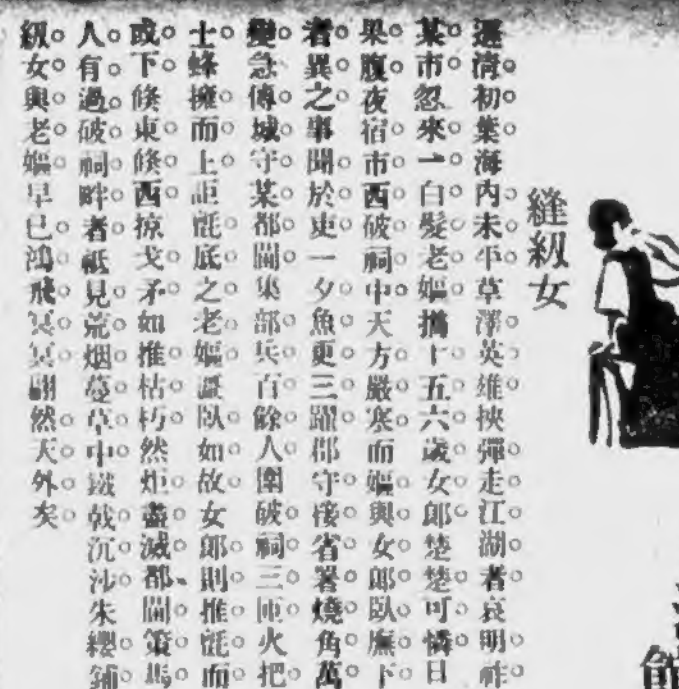 縫紉女
遜清初葉海內未平草澤英雄挾彈走江湖者哀明祚
某市忽來一白髮老嫗攜十五六歲女郎楚楚可憐日
果腹夜宿市西破祠中天方嚴寒而嫗與女郎臥廡下
者異之事聞於吏一夕魚更三躍郡守接省署燒角萬
變急傳城守某都閫集部兵百餘人圍破祠三匝火把
士蜂擁而上詎氈底之老嫗鼾臥如故女郎則推氈而
或下倏東倏西掠戈矛如推枯朽然炬盡滅都閫策馬
人有過破祠畔者祗見荒烟蔓草中鐵戟沉沙朱纓鋪
紉女與老嫗早已鴻飛冥冥翩然天外矣
館